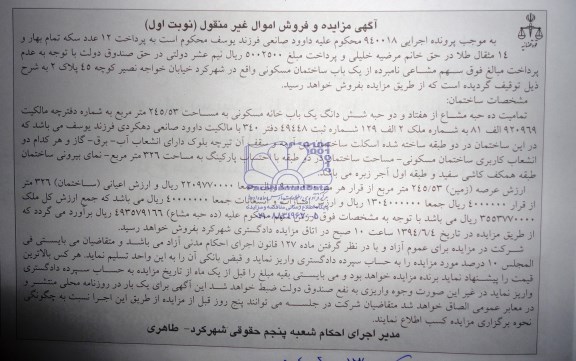 آگهی مزایده و فروش اموال غیر منقول (نوبت اول)
به موجب پرونده اجرایی ۹۴۰۰۱۸ محکوم علیه داوود صانعی فرزند یوسف محکوم است به پرداخت ۱۲ عدد سکه تمام بهار و
۱۴ مثقال طلا در حق خانم مرضیه خلیلی و پرداخت مبلغ ۵۰۰۲۵۰۰ ریال نیم عشر دولتی در حق صندوق دولت با توجه به عدم
پرداخت مبالغ فوق سهم مشاعی نامبرده از یک باب ساختمان مسکونی واقع در شهرکرد خیابان خواجه نصیر کوچه ۴۵ پلاک ۲ به شرح
ذیل توقیف گردیده است که از طریق مزایده بفروش خواهد رسید.
مشخصات ساختمان:
تمامیت ده حبه مشاع از هفتاد و دو حبه شش دانگ یک باب خانه مسکونی به مساحت ۲۴۵/۵۳ متر مربع به شماره دفترچه مالکیت
۹۲۰۹۶۹ الف ۸۱ به شماره ملک ۲ الف ۱۲۹ شماره ثبت ۴۹۴۴۸ دفتر ۳۴۰ با مالکیت داوود صانعی دهکردی فرزند یوسف می باشد که
در این ساختمان در دو طبقه ساخته شده اسکلت ساختمان و سقف آن تیرچه بلوک دارای انشعاب آب- برق- گاز و هر کدام دو
انشعاب کاربری ساختمان مسکونی- مساحت ساختمان در دو طبقه با احتساب پارکینگ به مساحت ۳۲۶ متر مربع- نمای بیرونی ساختمان
طبقه همکف کاشی سفید و طبقه اول آجر زبره می باشد
ارزش عرصه (زمین) ۲۴۵/۵۳ متر مربع از قرار هر جمعا ۲۲۰۹۷۷۰۰۰۰ ریال و ارزش اعیانی (ساختمان) ۳۲۶ متر
از قرار ۴۰۰۰۰۰۰ ریال جمعا ۱۳۰۴۰۰۰۰۰۰ ریال جمعا ۴۰۰۰۰۰۰۰ ریال می باشد که جمع ارزش کل ملک
۳۵۵۳۷۷۰۰۰۰ ریال می باشد با توجه به مشخصات فوق سهم محکوم علیه (ده حبه مشاع) ۴۹۳۵۷۹۱۶۶ ریال برآورد می گردد که
از طریق مزایده در تاریخ ۱۳۹۴/۶/۴ ساعت ۱۰ صبح در اتاق مزایده دادگستری شهرکرد بفروش خواهد رسید.
شرکت در مزایده برای عموم آزاد و با در نظر گرفتن ماده ۱۲۷ قانون اجرای احکام مدنی آزاد می باشد و متقاضیان می بایستی فی
المجلس ۱۰ درصد مورد مزایده را به حساب سپرده دادگستری واریز نماید و قبض بانکی آن را به این واحد تسلیم نماید. هر کس بالاترین
قیمت را پیشنهاد نماید برنده مزایده خواهد بود و می بایستی بقیه مبلغ را قبل از یک ماه از تاریخ مزایده به حساب سپرده دادگستری
واریز نماید در غیر این صورت وجوه واریزی به نفع صندوق دولت ضبط خواهد شد این آگهی برای یک بار در روزنامه محلی منتشر و
در معابر عمومی الصاق خواهد شد متقاضیان شرکت در جلسه می توانند پنج روز قبل از مزایده از طریق این اجرا نسبت به چگونگی
نحوه برگزاری مزایده کسب اطلاع نمایند.
مدیر اجرای احکام شعبه پنجم حقوقی شهرکرد- طاهری